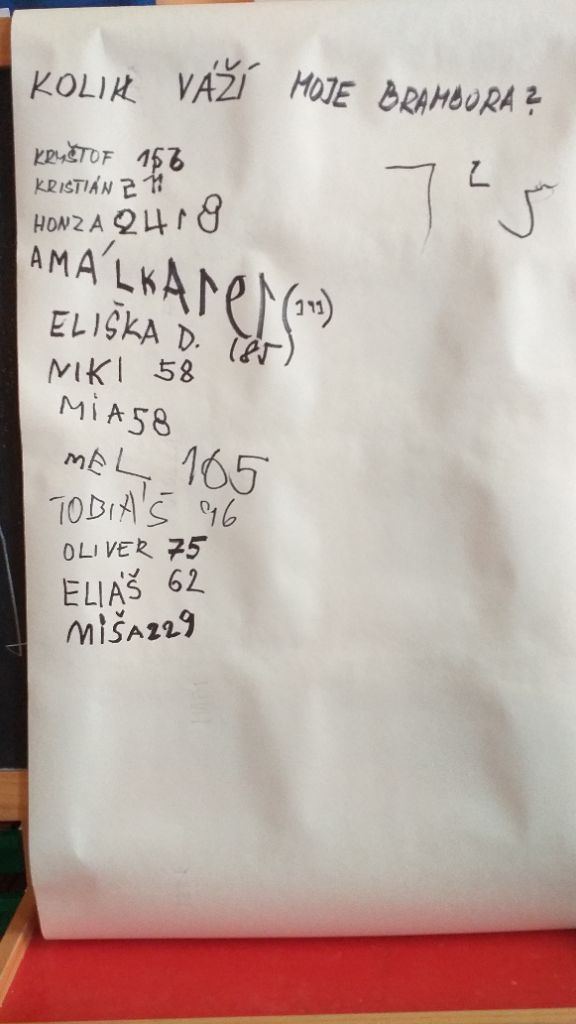 KOLIK VÁŽÍ MOJE BRAMBORA?
KRYŠTOF 156
KRISTIÁN 211
HONZA 2418
AMÁLKA (191)
ELIŠKA D. (85)
NIKI 58
MIA 58
MEL 165
TOBIÁŠ 96
OLIVER 75
ELIÁŠ 62
MIŠA 229